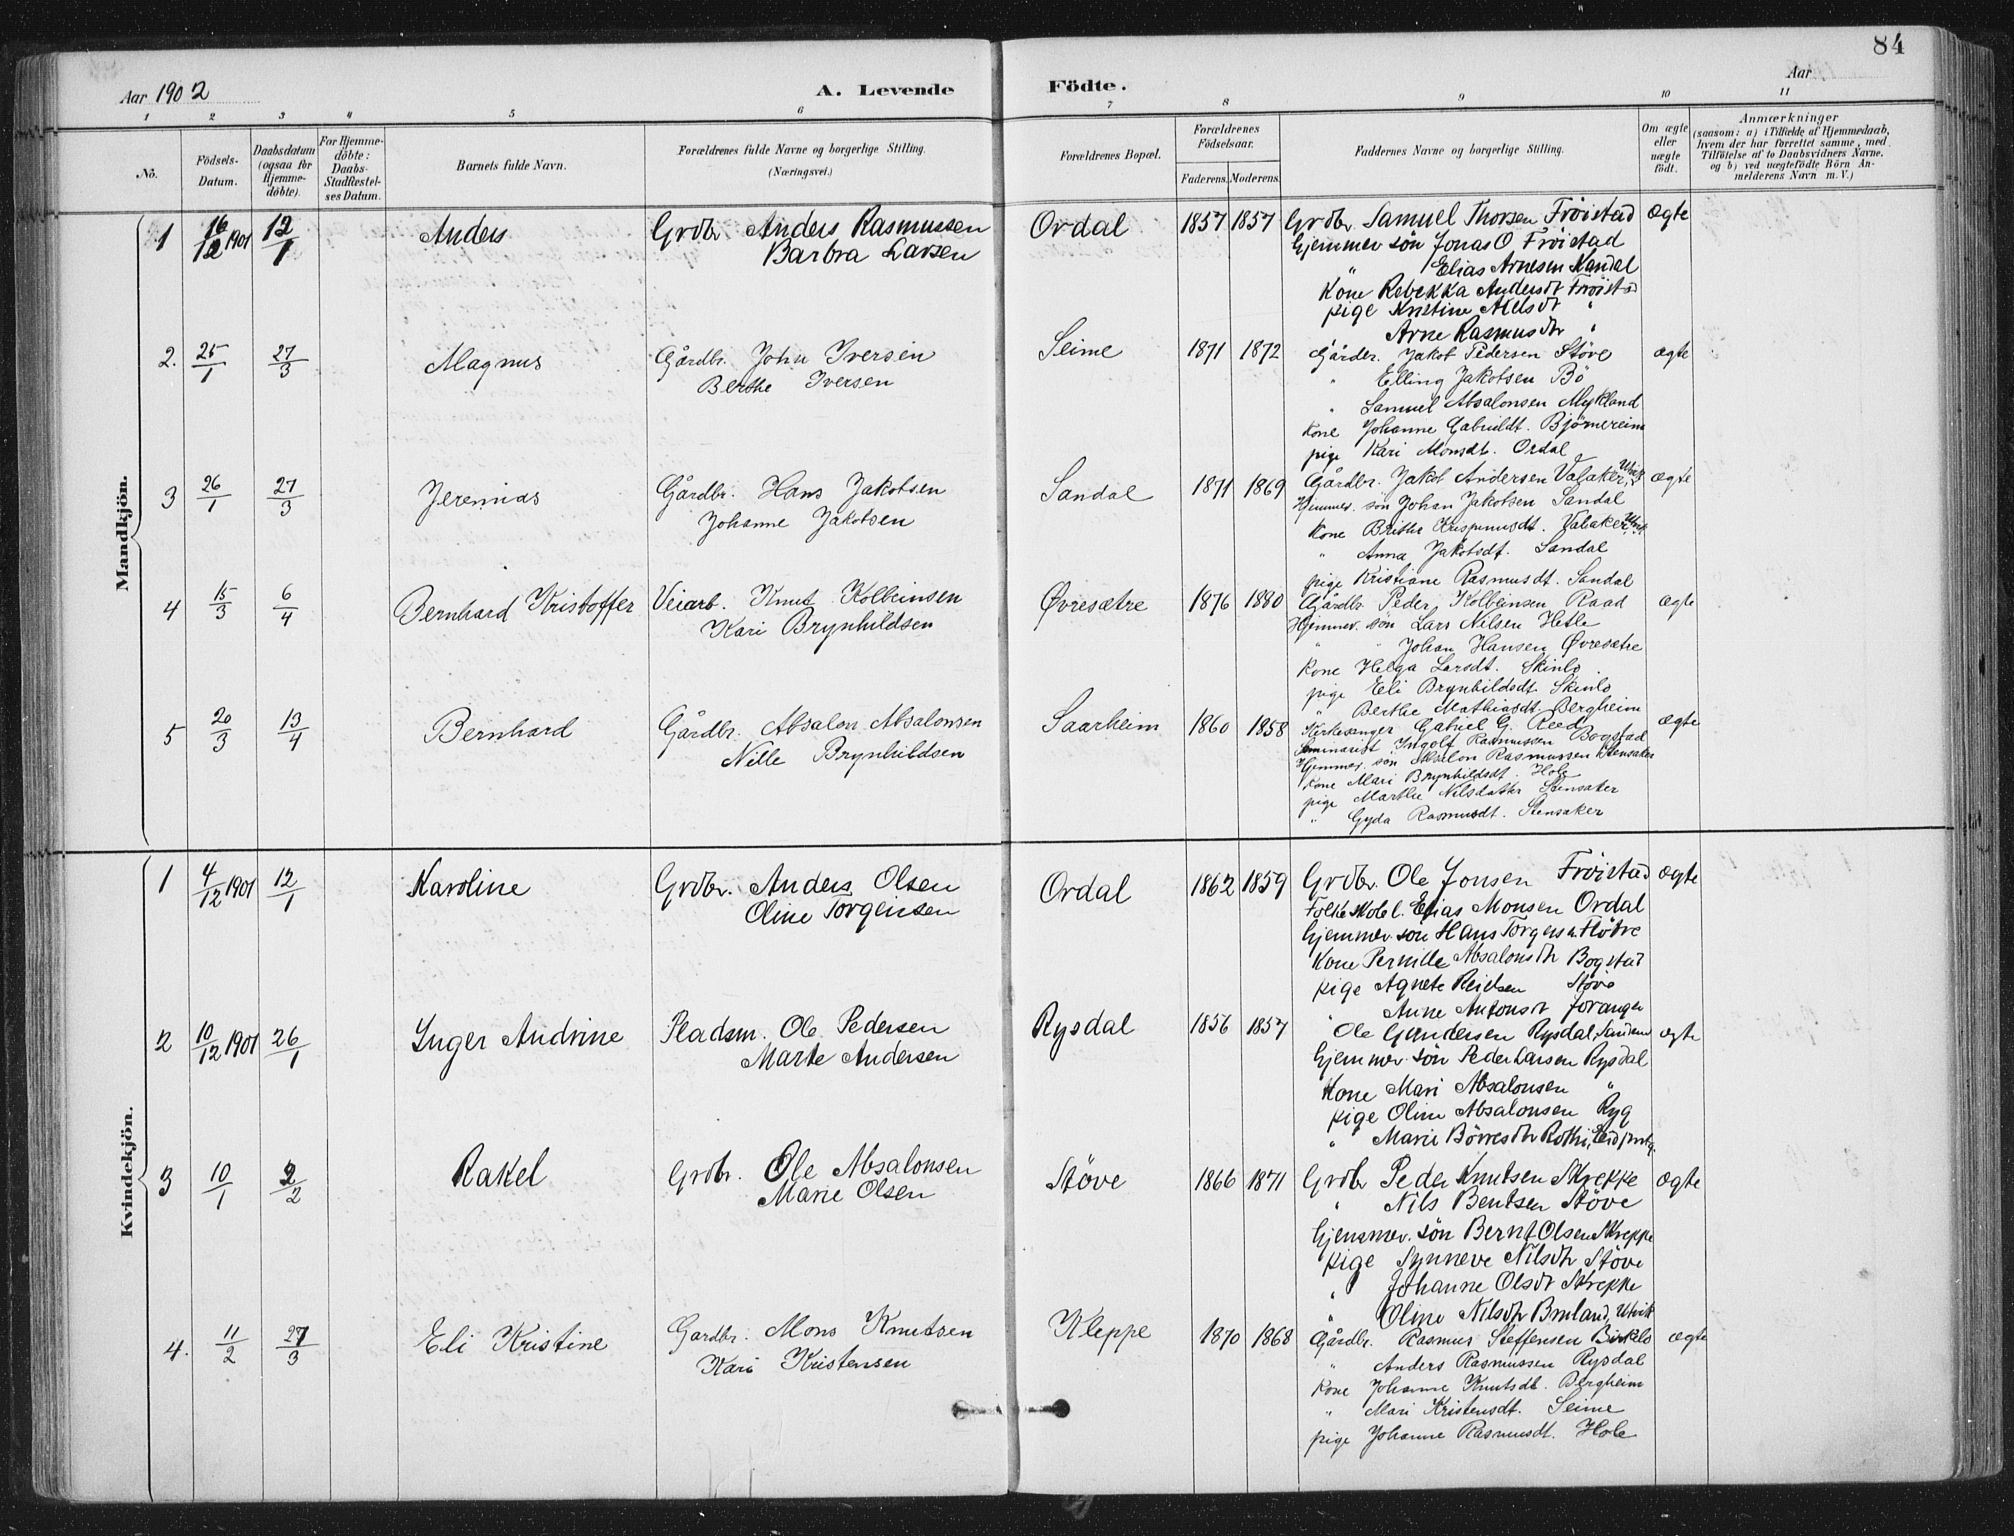 84
Aar 1902
A. Levende Födte.
Aar
1 2 3 4 5 6 7 8 9 10 11
No.
Födsels-Datum.
Daabsdatum (ogsaa for Hjemme-döbte).
For Hjemme-döbte: Daabs-Stadfæstel-ses Datum.
Barnets fulde Navn.
Forældrenes fulde Navne og borgerlige Stilling.
(Næringsvei.)
Forældrenes Bopæl.
Forældrenes Födselsaar.
Faderens. Moderens.
Faddernes Navne og borgerlige Stilling.
Om ægte eller uægte födt.
Anmærkninger
(saasom: a) i Tilfælde af Hjemmedaab,
hvem der har forrettet samme, med
Tilföielse af to Daabsvidners Navne.
og b) ved uægtefödte Börn An-
melderens Navn m. V.)
Mandkjön.
1 16/12 1901 12/1 Anders Grdbr Anders Rasmussen Ordal 1857 1857 Grdbr Samuel Thorsen Fröistad ægte
Barbra Larsen
Hjemmev sön Jonas O. Fröistad
" Elias Arnesen Kandal
Kone Rebekka Andersdt Fröistad
pige Kristine Nilsdt "
Arne Rasmusdtr "
2. 25/1 27/3 Magnus Gårdbr. John Iversen Seime 1871 1872 Gårdbr. Jakob Pedersen Støve ægte
Berthe Iversen
" Elling Jakobsen Bö
" Samuel Absalonsen Mykland
Kone Johanne Gabrieldt. Bjørnereim
pige Kari Monsdt. Ordal
3 26/1 27/3 Jeremias Gårdbr. Hans Jakobsen Sandal 1871 1869 Gårdbr. Jakob Andersen Valaker, Utvik ægte
Johanne Jakobsen
Hjemmev. søn Johan Jakobsen Sandal
Kone Brithe Rasmusdt. Valaker, Utvik
" Anna Jakobsdt. Sandal
pige Kristiane Rasmusdt. Sandal
4 15/3 6/4 Bernhard Kristoffer Veiarb. Knut Kolbeinsen Øvresætre 1876 1880 Gårdbr. Peder Kolbeinsen Raad ægte
Kari Brynhildsen
Hjemmev. søn Lars Nilsen Hetle
" " Johan Hansen Øvresætre
Kone Helga Larsdt. Skinlo
pige Eli Brynhildsdt. Skinlo
" Berthe Mathiasdt. Bergheim
5 20/3 13/4 Bernhard Gårdbr. Absalon Absalonsen Saarheim 1860 1858 Kirkesanger Gabriel G. Reed ægte
Nille Brynhildsen
Seminarist Ingolf Rasmussen Bogstad
Hjemmev. søn Absalon Rasmussen Stensaker
Kone Mari Brynhildsdt. Hole
pige Marthe Nilsdatter Stensaker
" Gyda Rasmusdt. Stensaker
Kvindekjön.
1 4/12 1901 12/1 Karoline Grdbr. Anders Olsen Ordal 1862 1859 Grdbr. Ole Jonsen Fröistad ægte
Oline Torgeirsen
Folkeskolel. Elias Monsen Ordal
Hjemmev sön Hans Torgersen Fløtre
Kone Pernille Absalonsdtr Bogstad
pige Agnete Reidsen Støve
" Anne Antonsdt Foranger
2 10/12 1901 26/1 Inger Andrine Pladsm. Ole Pedersen Rysdal 1856 1857 Ole Gundersen Rysdal, Sandene ægte
Marte Andersen
Hjemmev. sön Peder Larsen Rysdal
Kone Mari Absalonsen "
pige Oline Absalonsen Ryg
" Marie Börresdtr Rothi, Eidsprstg.
3 10/1 2/2 Rakel Grdbr. Ole Absalonsen Støve 1866 1871 Grdbr Peder Knutsen Skrepke ægte
Marie Olsen
" Nils Bentsen Støve
Hjemmev. sön Bernt Olsen Skreppe
pige Synneve Nilsdtr Støve
" Johanne Olsdt Skrepke
" Oline Nilsdtr Bruland, Utvik
4. 11/2 27/3 Eli Kristine Gardbr. Mons Knutsen Kleppe 1870 1868 Gårdbr. Rasmus Steffensen Birkelo ægte
Kari Kristensen
" Anders Rasmussen Rysdal
Kone Johanne Knutsdt. Bergheim
" Mari Kristensdt. Seime
pige Johanne Rasmusdt. Hole